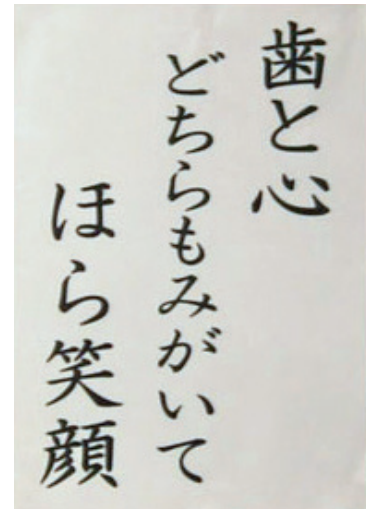 歯と心
どちらもみがいて
ほら笑顔